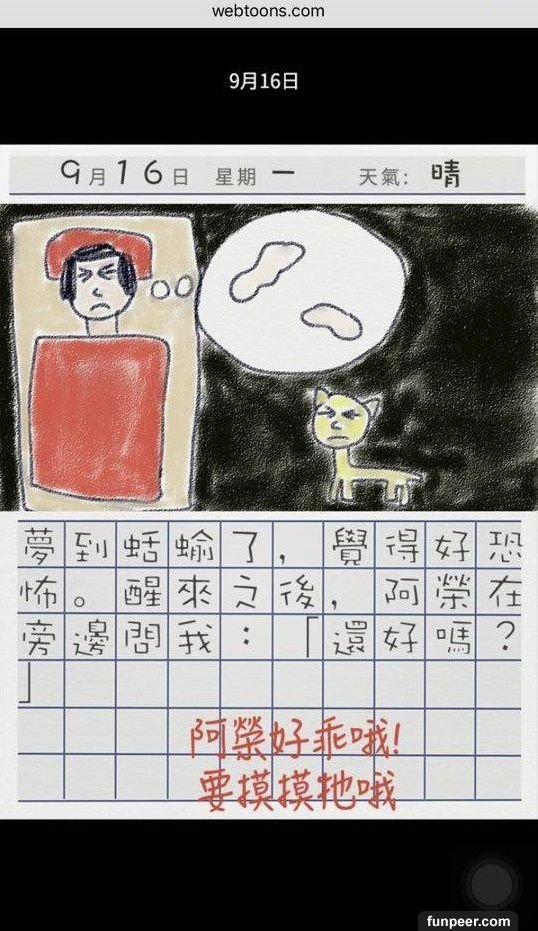 webtoons.com
9月16日
9月16日 星期一 天氣: 晴
夢到蛞蝓了，覺得好恐
怖。醒來之後，阿榮在
旁邊問我：「還好嗎？
」
阿榮好乖哦!
要摸摸牠哦
funpeer.com